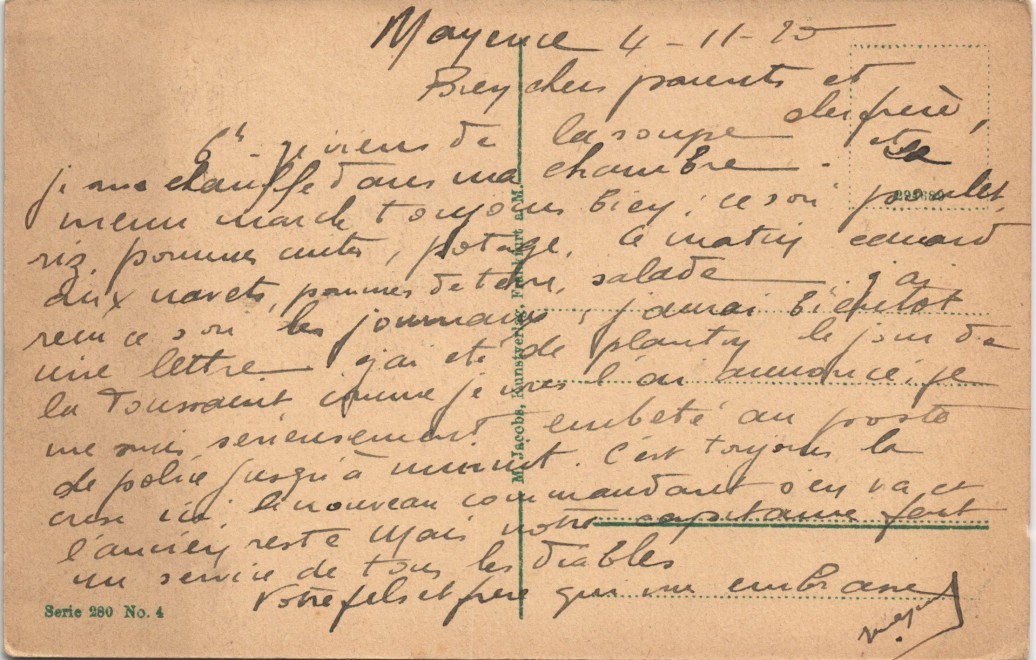 Mayence 4-11-25
Bien chers parents et
cher frère,
6h - je viens de la soupe et
je me chauffe dans ma chambre. Le
menu marche toujours bien; ce soir poulet,
riz, pommes cuites, potage, ce matin canard
aux navets, pommes de terre, salade. J'ai
reçu ce soir les journaux, j'aurai bientôt
une lettre. J'ai été de planton le jour de
la Toussaint comme je vous l'ai annoncé, je
me suis sérieusement embêté au poste
de police jusqu'à minuit. C'est toujours la
crise ici, le nouveau commandant s'en va et
l'ancien reste mais notre capitaine fait
un service de tous les diables
Votre fils et frère qui vous embrasse
M. Jacobs, Kunstverlag, Frankfurt a. M.
Serie 280 No. 4